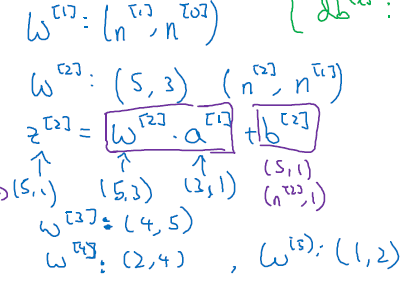 w^[1]: (n^[1], n^[0])
[ db^[2]:
w^[2]: (5, 3) (n^[2], n^[1])
z^[2] = w^[2] · a^[1] + b^[2]
(5,1) (5,3) (3,1) (5,1)
(n^[2], 1)
w^[3]: (4,5)
w^[4]: (2,4) , w^[5]: (1,2)